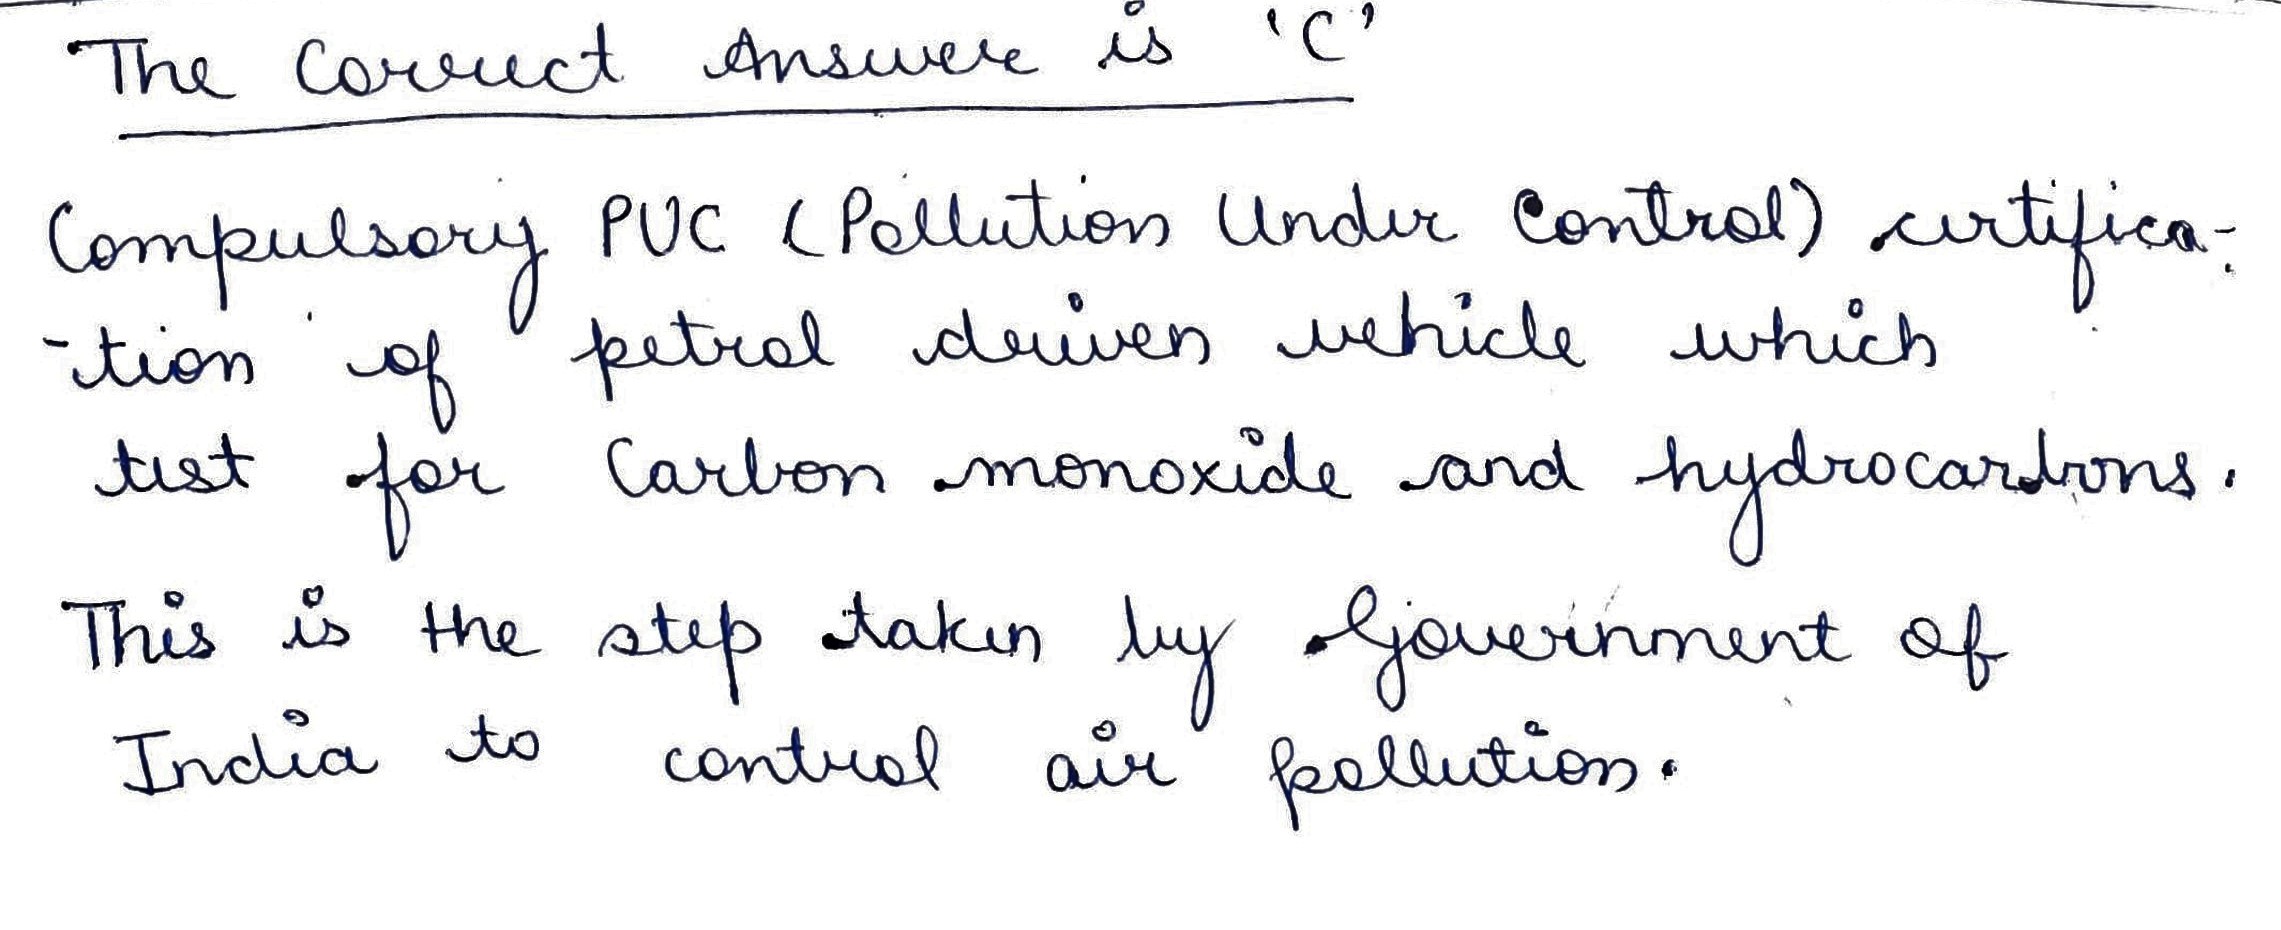 The Correct Answere is 'C'
Compulsory PUC (Pollution Under Control) certifica-
-tion of petrol driven vehicle which
test for Carbon monoxide and hydrocarbons.
This is the step taken by Government of
India to control air pollution.